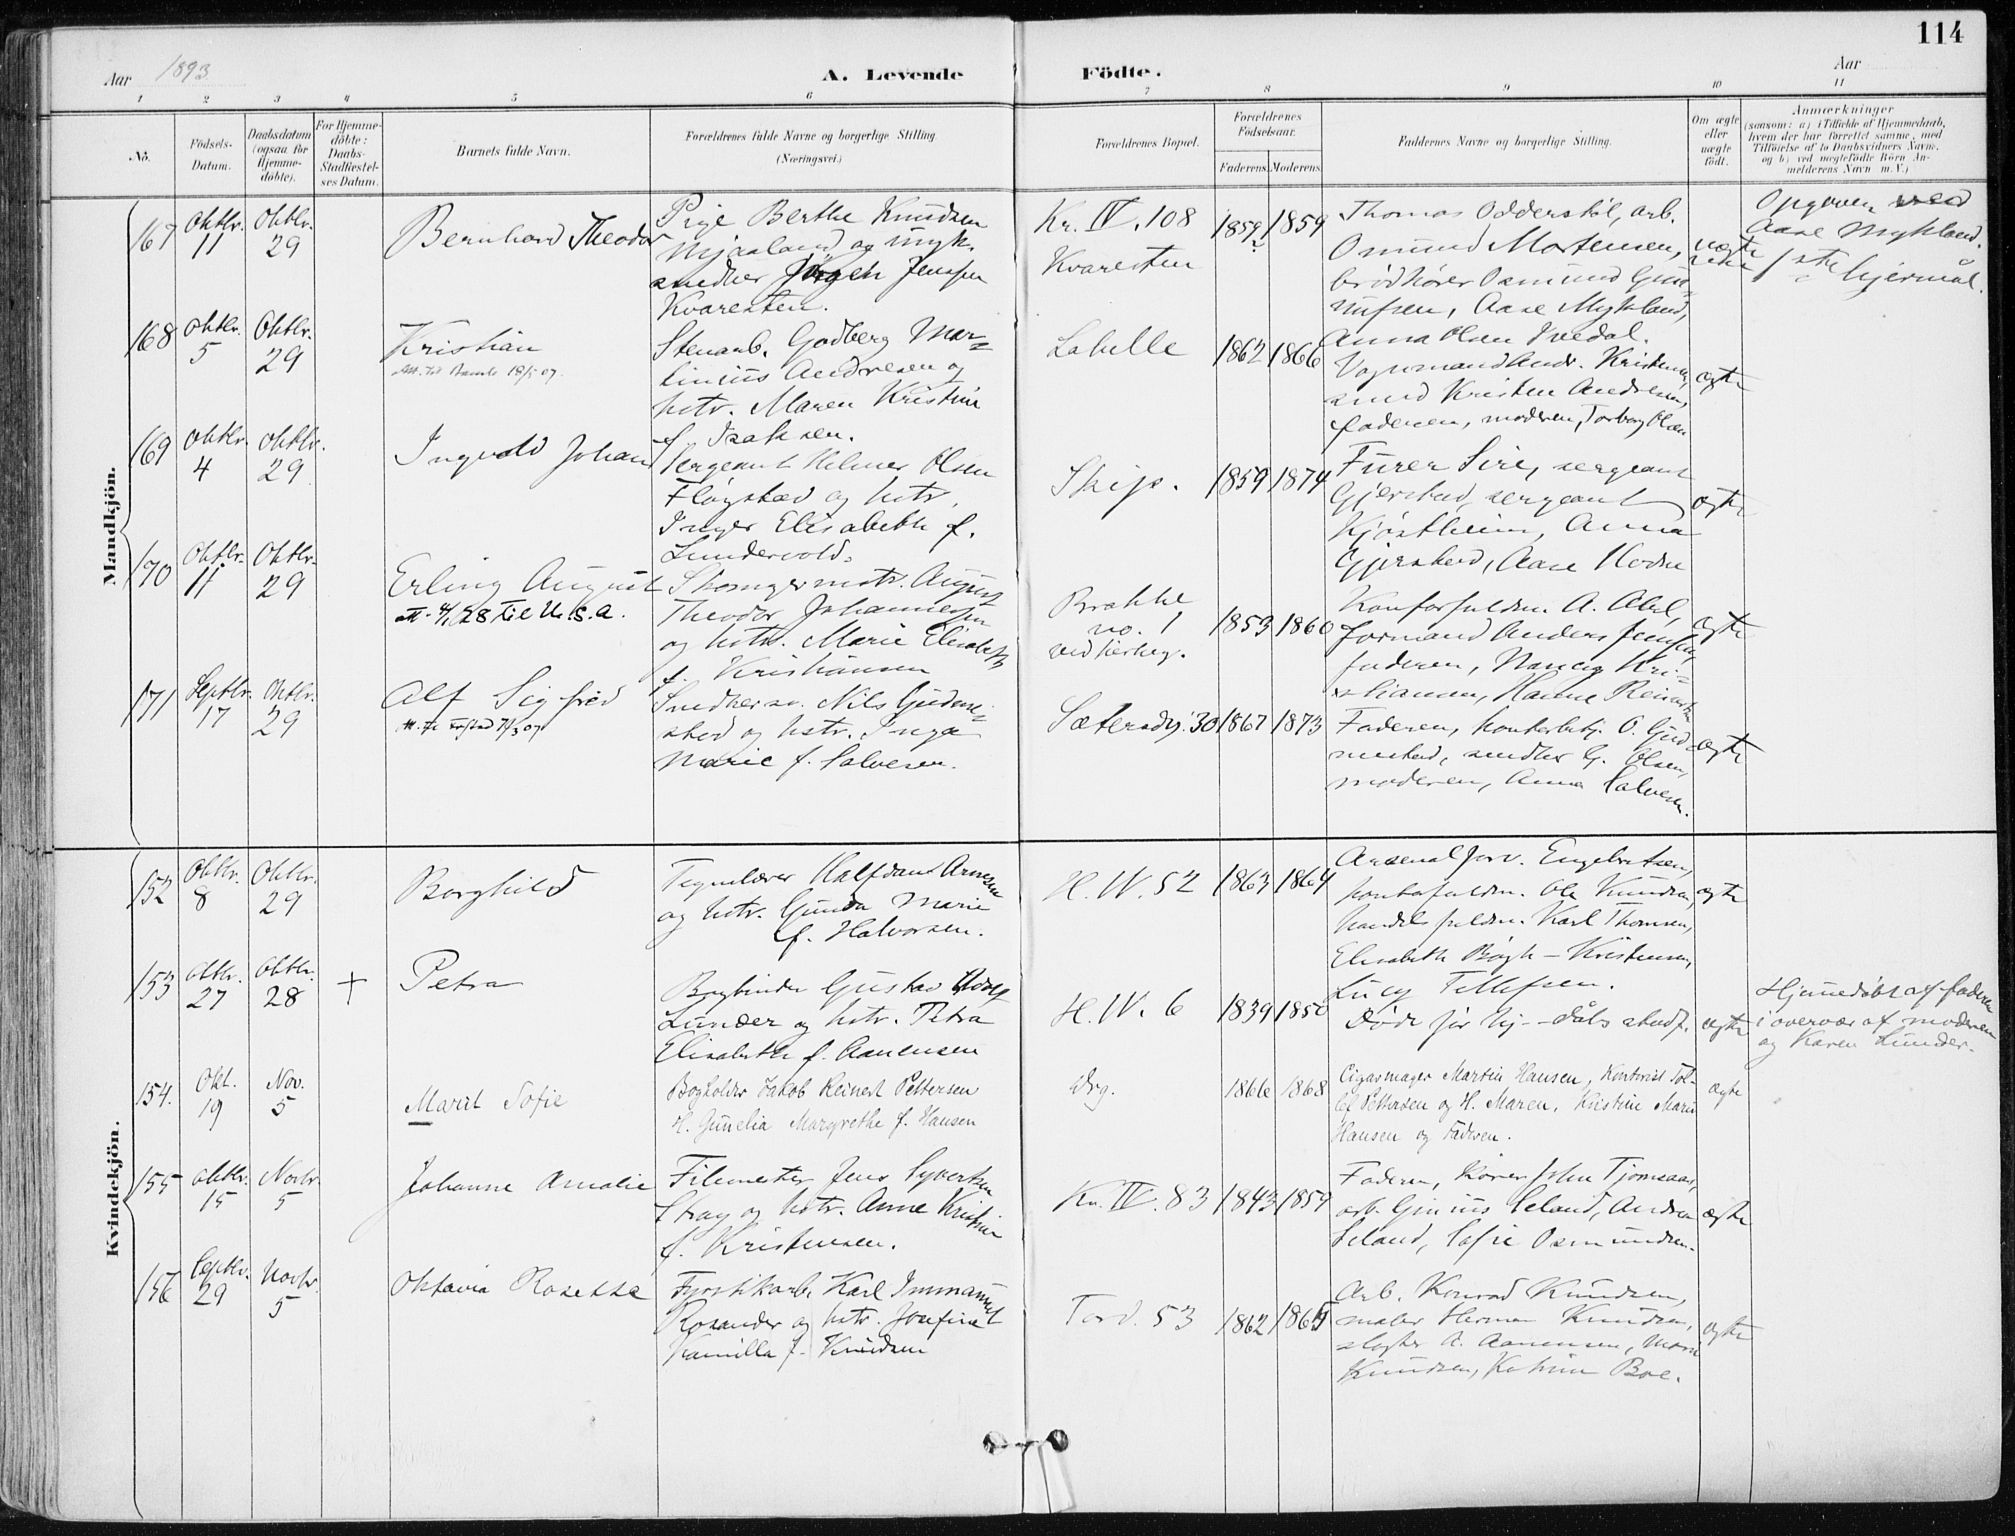 114
Aar 1893
A. Levende Födte.
Aar
1 2 3 4 5 6 7 8 9 10 11
No.
Födsels-
Datum.
Daabsdatum
(ogsaa for
Hjemme-
döbte).
For Hjemme-
döbte:
Daabs-
Stadfæstel-
ses Datum.
Barnets fulde Navn.
Forældrenes fulde Navne og borgerlige Stilling.
(Næringsvei.)
Forældrenes Bopæl.
Forældrenes
Födselsaar.
Faderens. Moderens.
Faddernes Navne og borgerlige Stilling.
Om ægte
eller
uægte
födt.
Anmærkninger
(saasom: a) i Tilfælde af Hjemmedaab,
hvem der har forrettet samme, med
Tilföielse af to Daabsvidners Navne,
og b) ved uægtefödte Börn An-
melderens Navn m. V.)
Mandkjön.
167
Oktbr.
11
Oktbr.
29
Bernhard Theodor
Pige Berthe Knudsen
og ungk.
snedker Jörgen Jensen
Kvaresten.
Kr. IV. 108
Kvaresten
1859 1859
Thomas Odderstöl, arb.
Osmund Mortensen,
brödkörer Osmund Gun-
nufsen, Aase Mykland,
Anna Olsen
uægte
Opgaven ved
Aase Mykland.
168
Oktbr.
5
Oktbr.
29
Kristian
Att. til Bamle 18/5 07.
Stenarb. Godberg Mar-
tinius Andresen og
hstr. Maren Kristine
f. Isaksen.
Labelle
1862 1866
Vognmand Andr. Kristensen,
smed Kristen Andresen,
faderen, moderen, Torborg Olsen
ægte
169
Oktbr.
4
Oktbr.
29
Ingvald Johan
Sergeant Helmer Olsen
Flögstad og hstr.
Inger Elisabeth f.
Lundevold.
Skips.
1859 1874
Furer Sire, sergeant
Gjerstad, sergeant
Kjöstheim, Anna
Gjerstad, Aase Hodne
ægte
170
Oktbr.
11
Oktbr.
29
Erling August
Att. 4/1 28 til U.S.A.
Skomgermstr. August
Theodor Johannesen
og hstr. Marie Elisabeth
f. Kristiansen
Brakke
no. 1
ved
1853 1860
Kontorfuldm. A. Abel,
formand Anders Jensen,
faderen, Nancy Kri-
stiansen, Hanne
ægte
171
Septbr.
17
Oktbr.
29
Alf Sigfred
Snedkersv. Nils Gudme-
stad og hstr. Inga
Marie f. Salvesen.
Sætersdg. 30
1867 1873
Faderen, kontorbetj. O. Gud-
mestad, snedker G. Olsen,
moderen, Anna Salvesen.
ægte
Kvindekjön.
152
Oktbr.
8
Oktbr.
29
Borghild
Tegnelærer Halfdan Arnesen
og hstr. Gunda Marie
f. Halvorsen.
H. W. 52
1863 1864
Arsenalforv. Engebretsen,
kontorfuldm. Ole Knudsen,
handelsfuldm. Karl Thomsen,
Elisabeth Bögh-Kristensen,
Lucy Tellefsen.
ægte
153
Oktbr.
27
Oktbr.
28
+
Petra
Bogbinder Gustav Adolf
Lunder og hstr. Petra
Elisabeth f. Aanensen
H. W. 6
1839 1850
Döde för hj-dåbs stadf.
ægte
Hjemmedöbt af faderen
i overvær af moderen
og Karen Lunder.
154.
Okt.
19
Nov.
5
Marit Sofie
Bogholder Jakob Reinert Pettersen
H. Gunelia Margrethe f. Hansen
1866 1868
Cigarmager Martin Hansen, Kontorist Tol-
lef Pettersen og H. Maren, Kristine Marie
Hansen og Faderen.
ægte
155
Oktbr.
15
Novbr.
5
Johanne Amalie
Filemester Jens Syvertsen
Stray og hstr. Anne Kristine
f. Kristensen.
Kr. IV. 83
1843 1859
Faderen, körer John Tjomsaas,
arb. Ginius Seland, Andrea
Seland, Sofie Osmundsen.
ægte
156
Septbr.
29
Novbr.
5
Oktavia Rosetta
Fyrstikarb. Karl Immanuel
Rosander og hstr. Josefine
Kamilla f. Knudsen
Tord. 53
1862 1865
Arb. Konrad Knudsen,
maler Herman Knudsen,
slagter A. Aanensen, Marie
Knudsen, Katrine Boe.
ægte